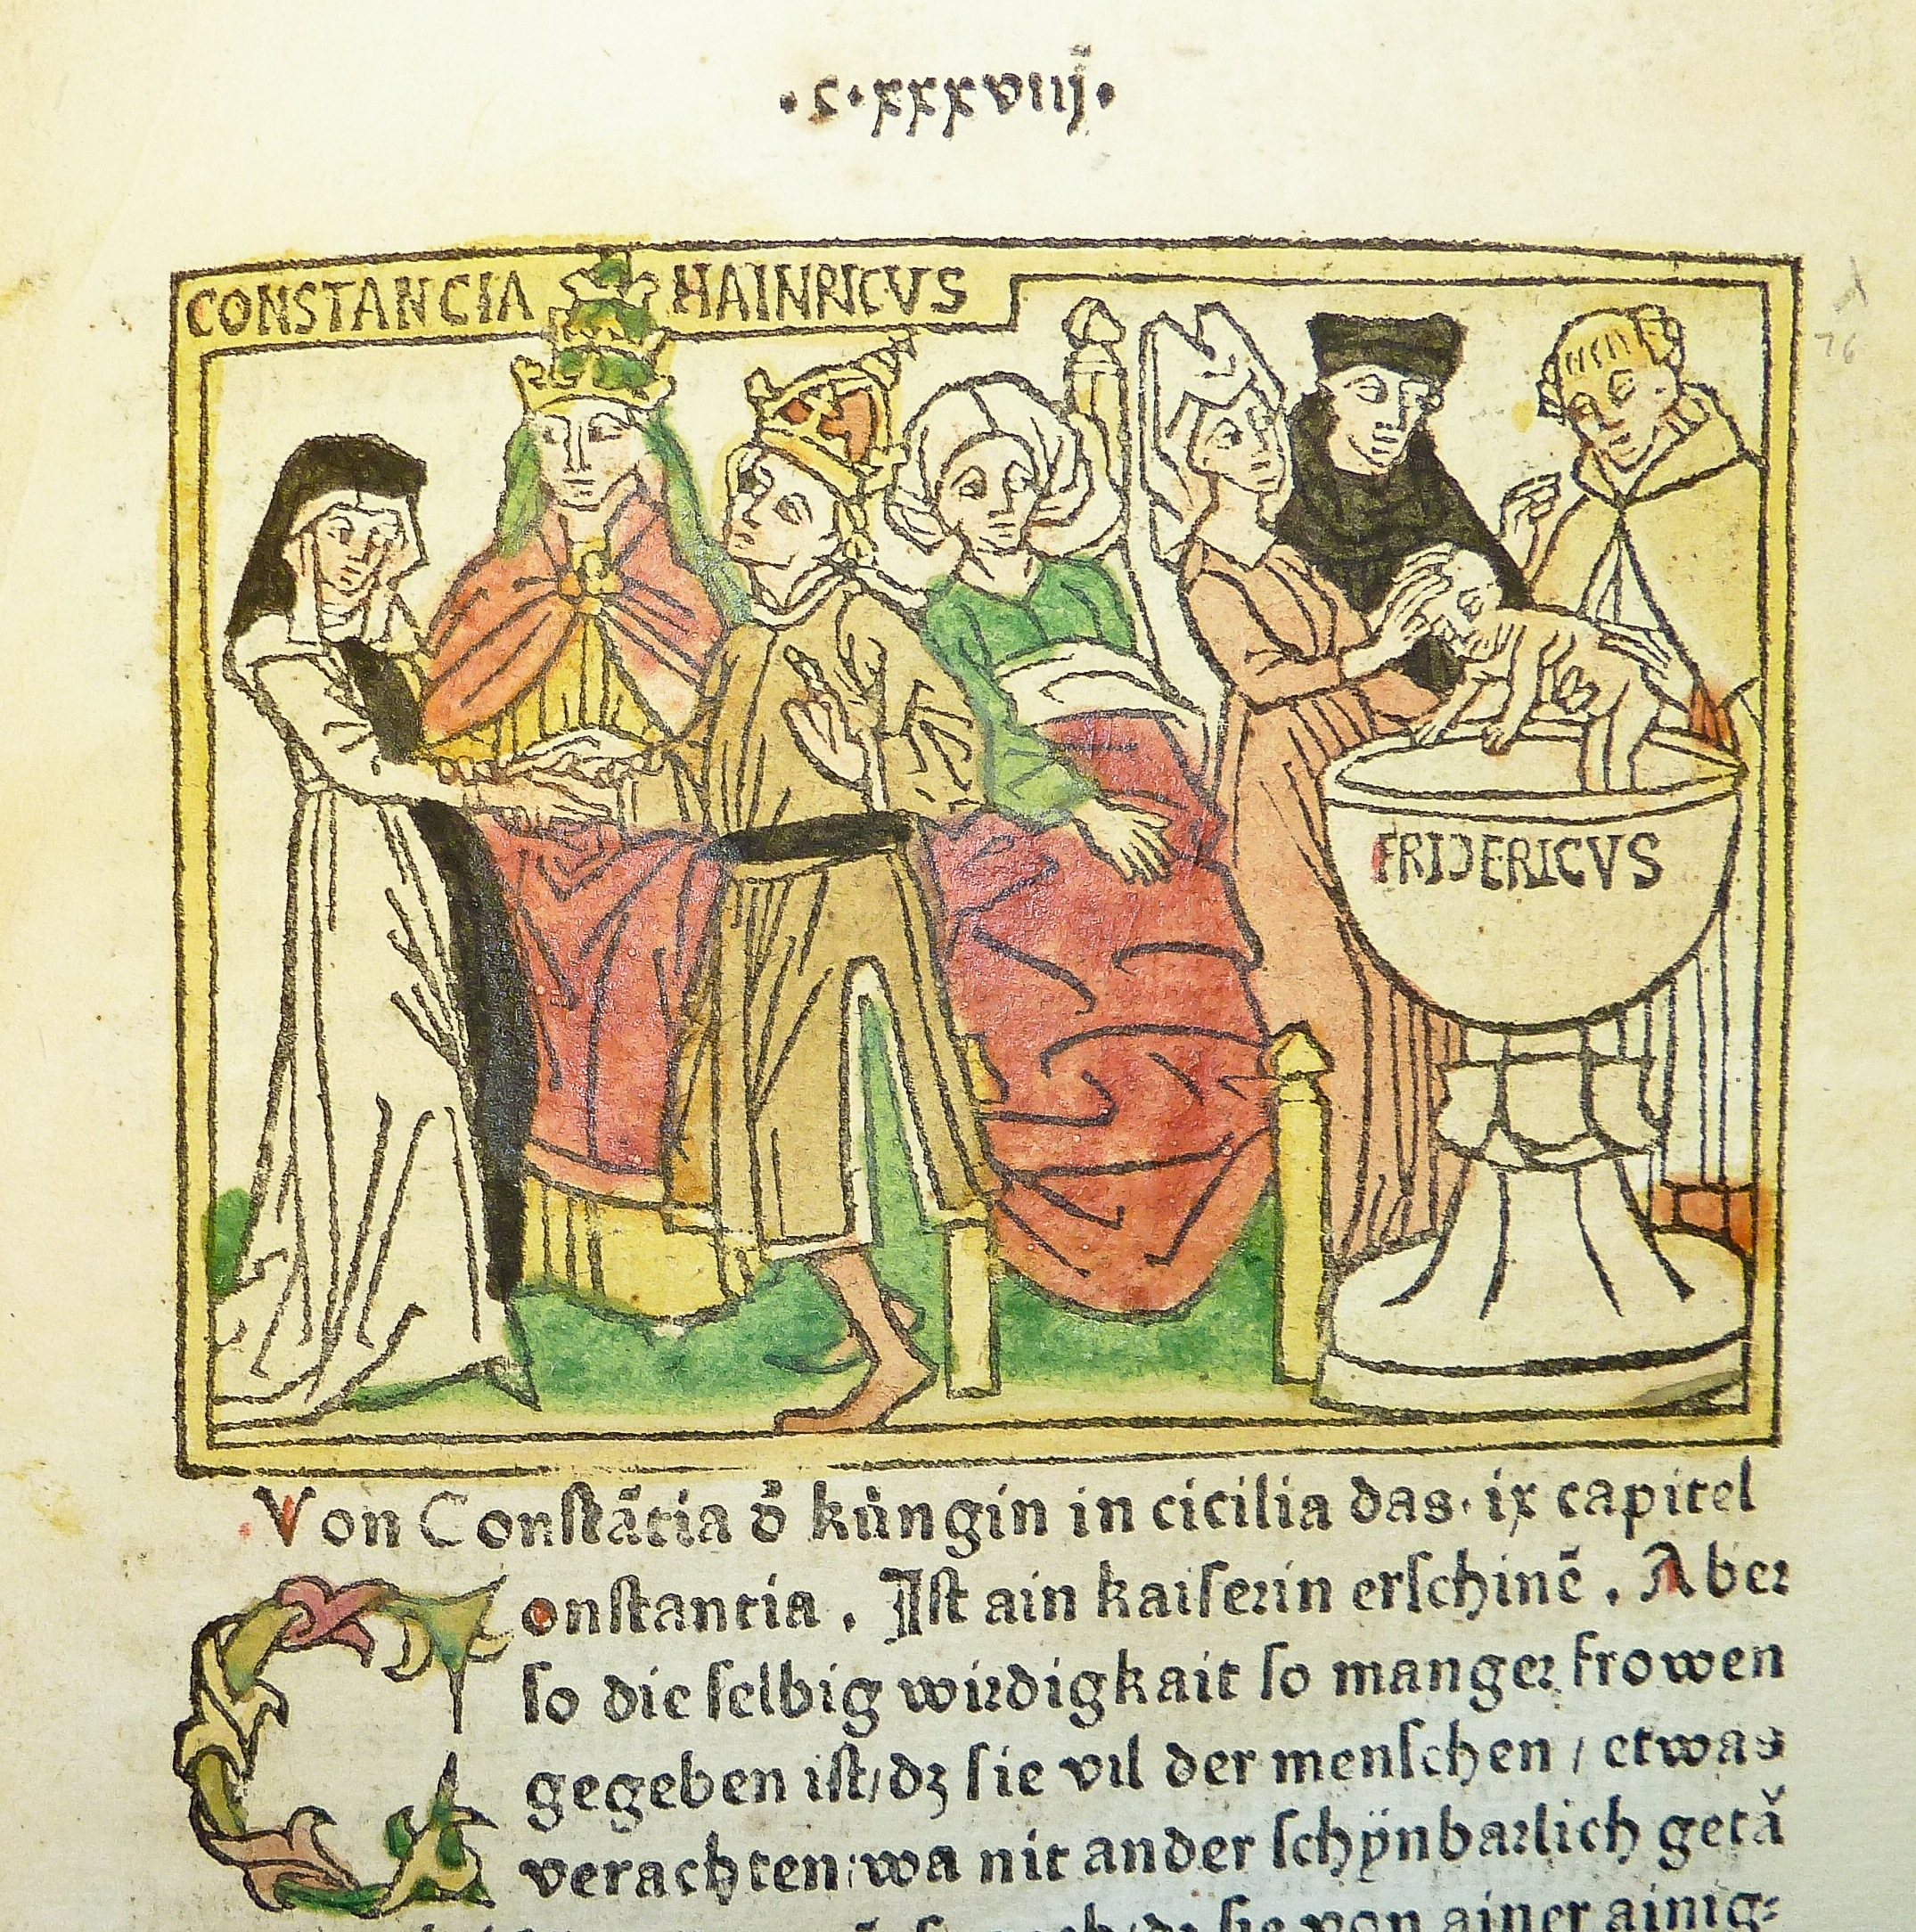 ·C·xxxviij̄·
CONSTANCIA HAINRICVS
FRIDERICVS
Von Conſtãtia d̄ kúngin in cicilia das·ix capitel
Conſtantia. Iſt ain kaiſerin erſchinē. Aber
ſo die ſelbig wirdigkait ſo manger frowen
gegeben iſt/dz ſie vil der menſchen / etwas
verachten:wa nit ander ſchÿnbarlich getā
ſie von ainer ainig⸗